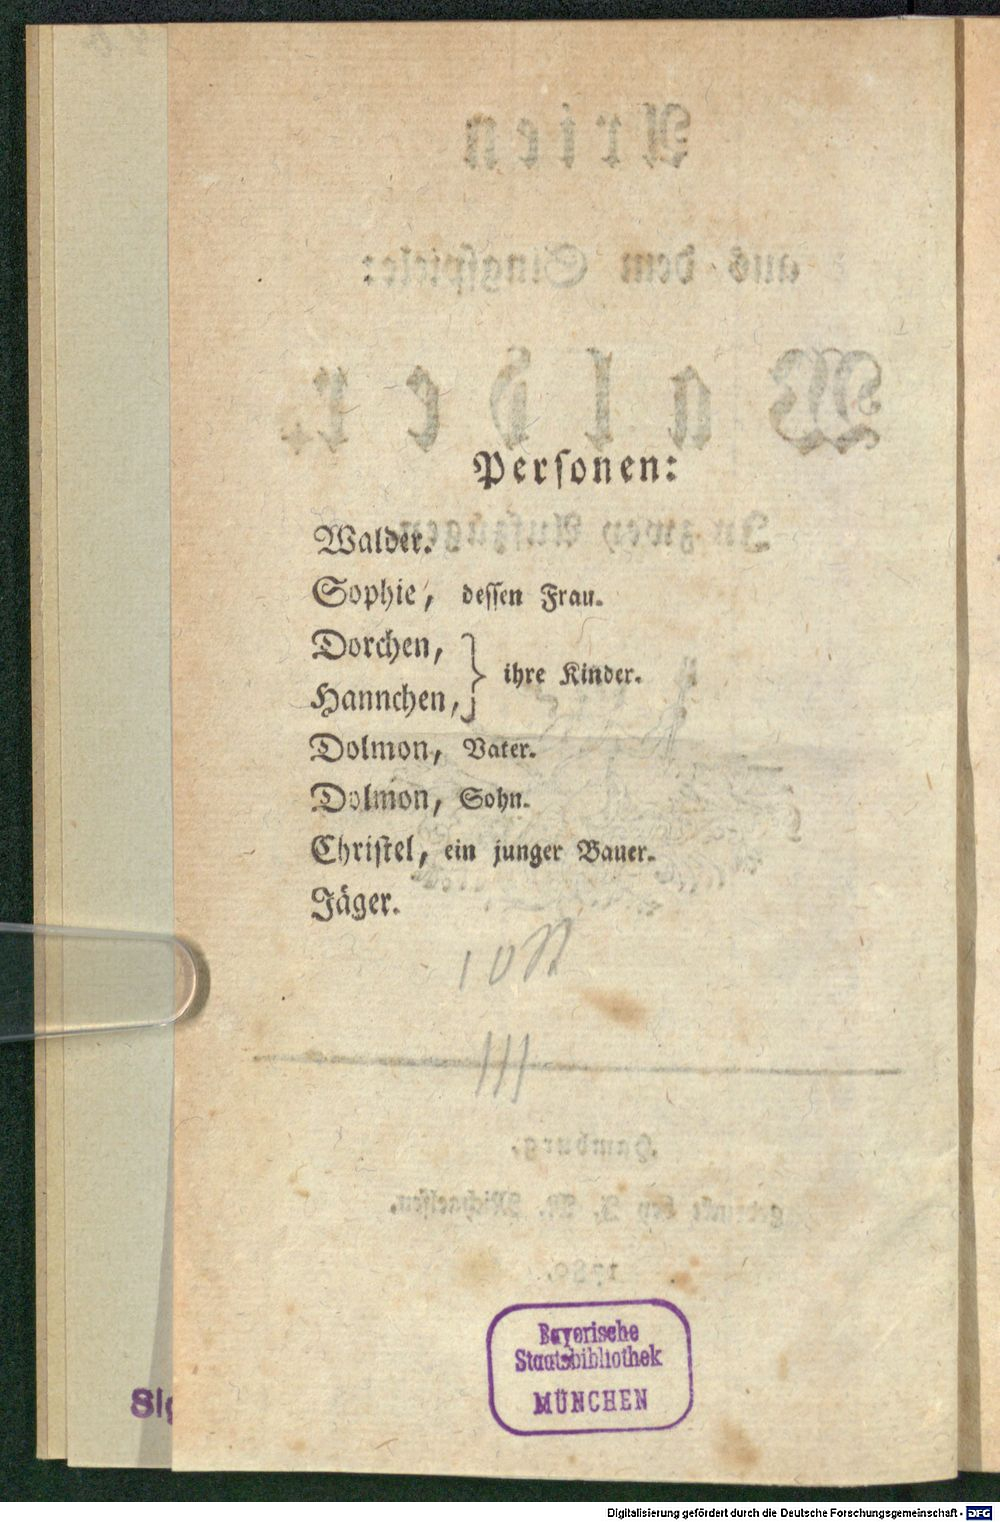 Personen:
Walder.
Sophie, dessen Frau.
Dorchen,
Hannchen, } ihre Kinder.
Dolmon, Vater.
Dolmon, Sohn.
Christel, ein junger Bauer.
Jäger.
Bayerische
Staatsbibliothek
MÜNCHEN
Digitalisierung gefördert durch die Deutsche Forschungsgemeinschaft - DFG